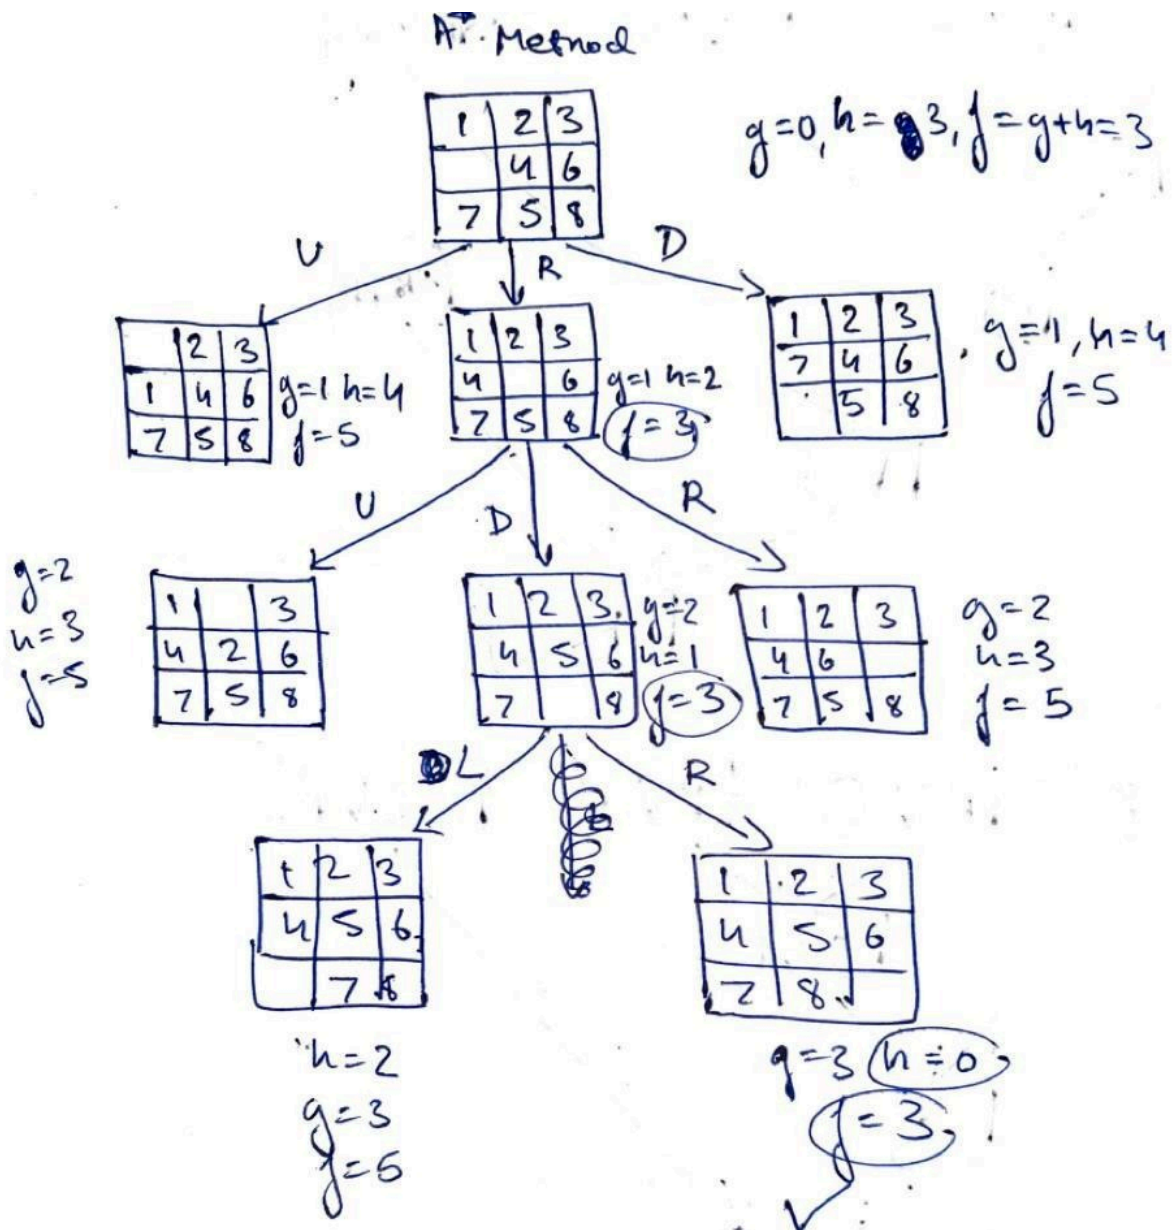 A* Method
1 2 3
4 6
7 5 8
g=0, h=3, f=g+h=3
U
R
D
2 3
1 4 6
7 5 8
g=1 h=4
f=5
1 2 3
4 6
7 5 8
g=1 h=2
f=3
1 2 3
7 4 6
5 8
g=1, h=4
f=5
U
D
R
g=2
h=3
f=5
1 3
4 2 6
7 5 8
1 2 3
4 5 6
7 8
g=2
h=1
f=3
1 2 3
4 6
7 5 8
g=2
h=3
f=5
L
R
1 2 3
4 5 6
7 8
h=2
g=3
f=5
1 2 3
4 5 6
7 8
g=3 h=0
f=3